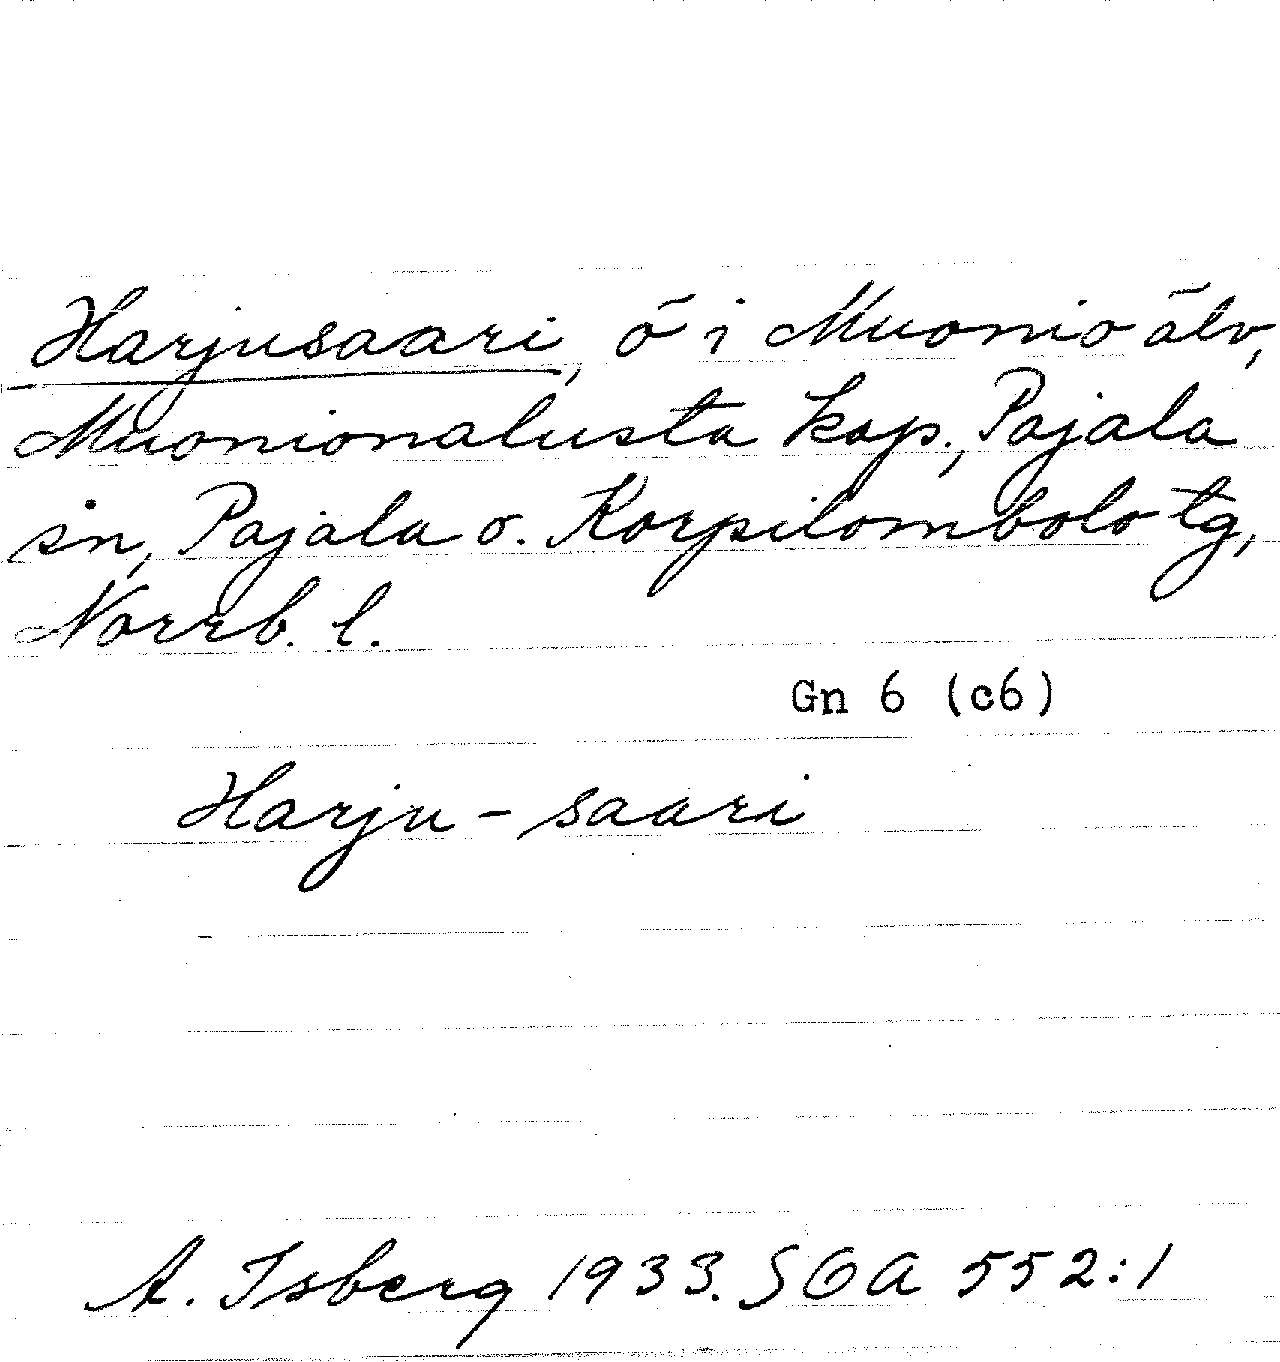 Harjusaari, ö i Muonio älv,
Muonionalusta kap., Pajala
sn, Pajala o. Korpilombolo tg,
Norrb. l.
Gn 6 (c6)
Harju-saari
A. Isberg 1933. SOA 552:1